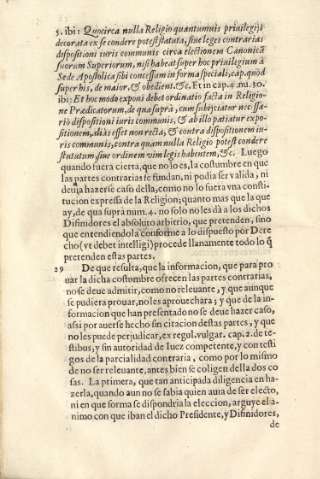 5. ibi: Quocirca nulla Religio quantumuis priuilegijs
decorata ex se condere potest statuta, siue leges contrarias
dispositioni iuris communis circa electionem Canonicã
suorum Superiorum, nisi habeat super hoc priuilegium à
Sede Apostolica sibi concessum in forma speciali, cap. quod
super his, de maior. & obedient. &c. Et in cap. 4. nu. 30.
ibi: Et hoc modo exponi debet ordinatio facta in Religio-
ne Prædicatorum, de qua suprà, cum subijciatur necessa-
rio dispositioni iuris communis, & ab illo patiatur expo-
sitionem, aliàs esset non recta, & contra dispositionem iu-
ris communis, contra quam nulla Religio potest condere
statutum siue ordinem vim legis habentem, &c. Luego
quando fuera cierta, que no lo es, la costumbre en que
las partes contrarias se fundan, ni podia ser valida, ni
deuia hazerse caso della, como no lo fuera vna consti-
tucion expressa de la Religion; quanto mas que la que
ay, de qua suprà num. 4. no solo no les dà a los dichos
Difinidores el absoluto arbitrio, que pretenden, sino
que entendiendola conforme a lo dispuesto por Dere-
cho (vt debet intelligi) procede llanamente todo lo q̃
pretenden estas partes.
29 De que resulta, que la informacion, que para pro
uar la dicha costumbre ofrecen las partes contrarias,
no se deue admitir, como no releuante, y que aunque
se pudiera prouar, no les aprouechara; y que de la in-
formacion que han presentado no se deue hazer caso,
assi por auerse hecho sin citacion destas partes, y que
no les puede perjudicar, ex regul. vulgar. cap. 2. de te-
stibus, y sin autoridad de Iuez competente, y con testi
gos de la parcialidad contraria, como por lo mismo
de no ser releuante, antes bien se coligen della dos co
sas. La primera, que tan anticipada diligencia en ha-
zerla, quando aun no se sabia quien auia de ser electo,
ni en que forma se dispondria la eleccion, arguye el a-
nimo con que iban el dicho Presidente, y Difinidores,
de